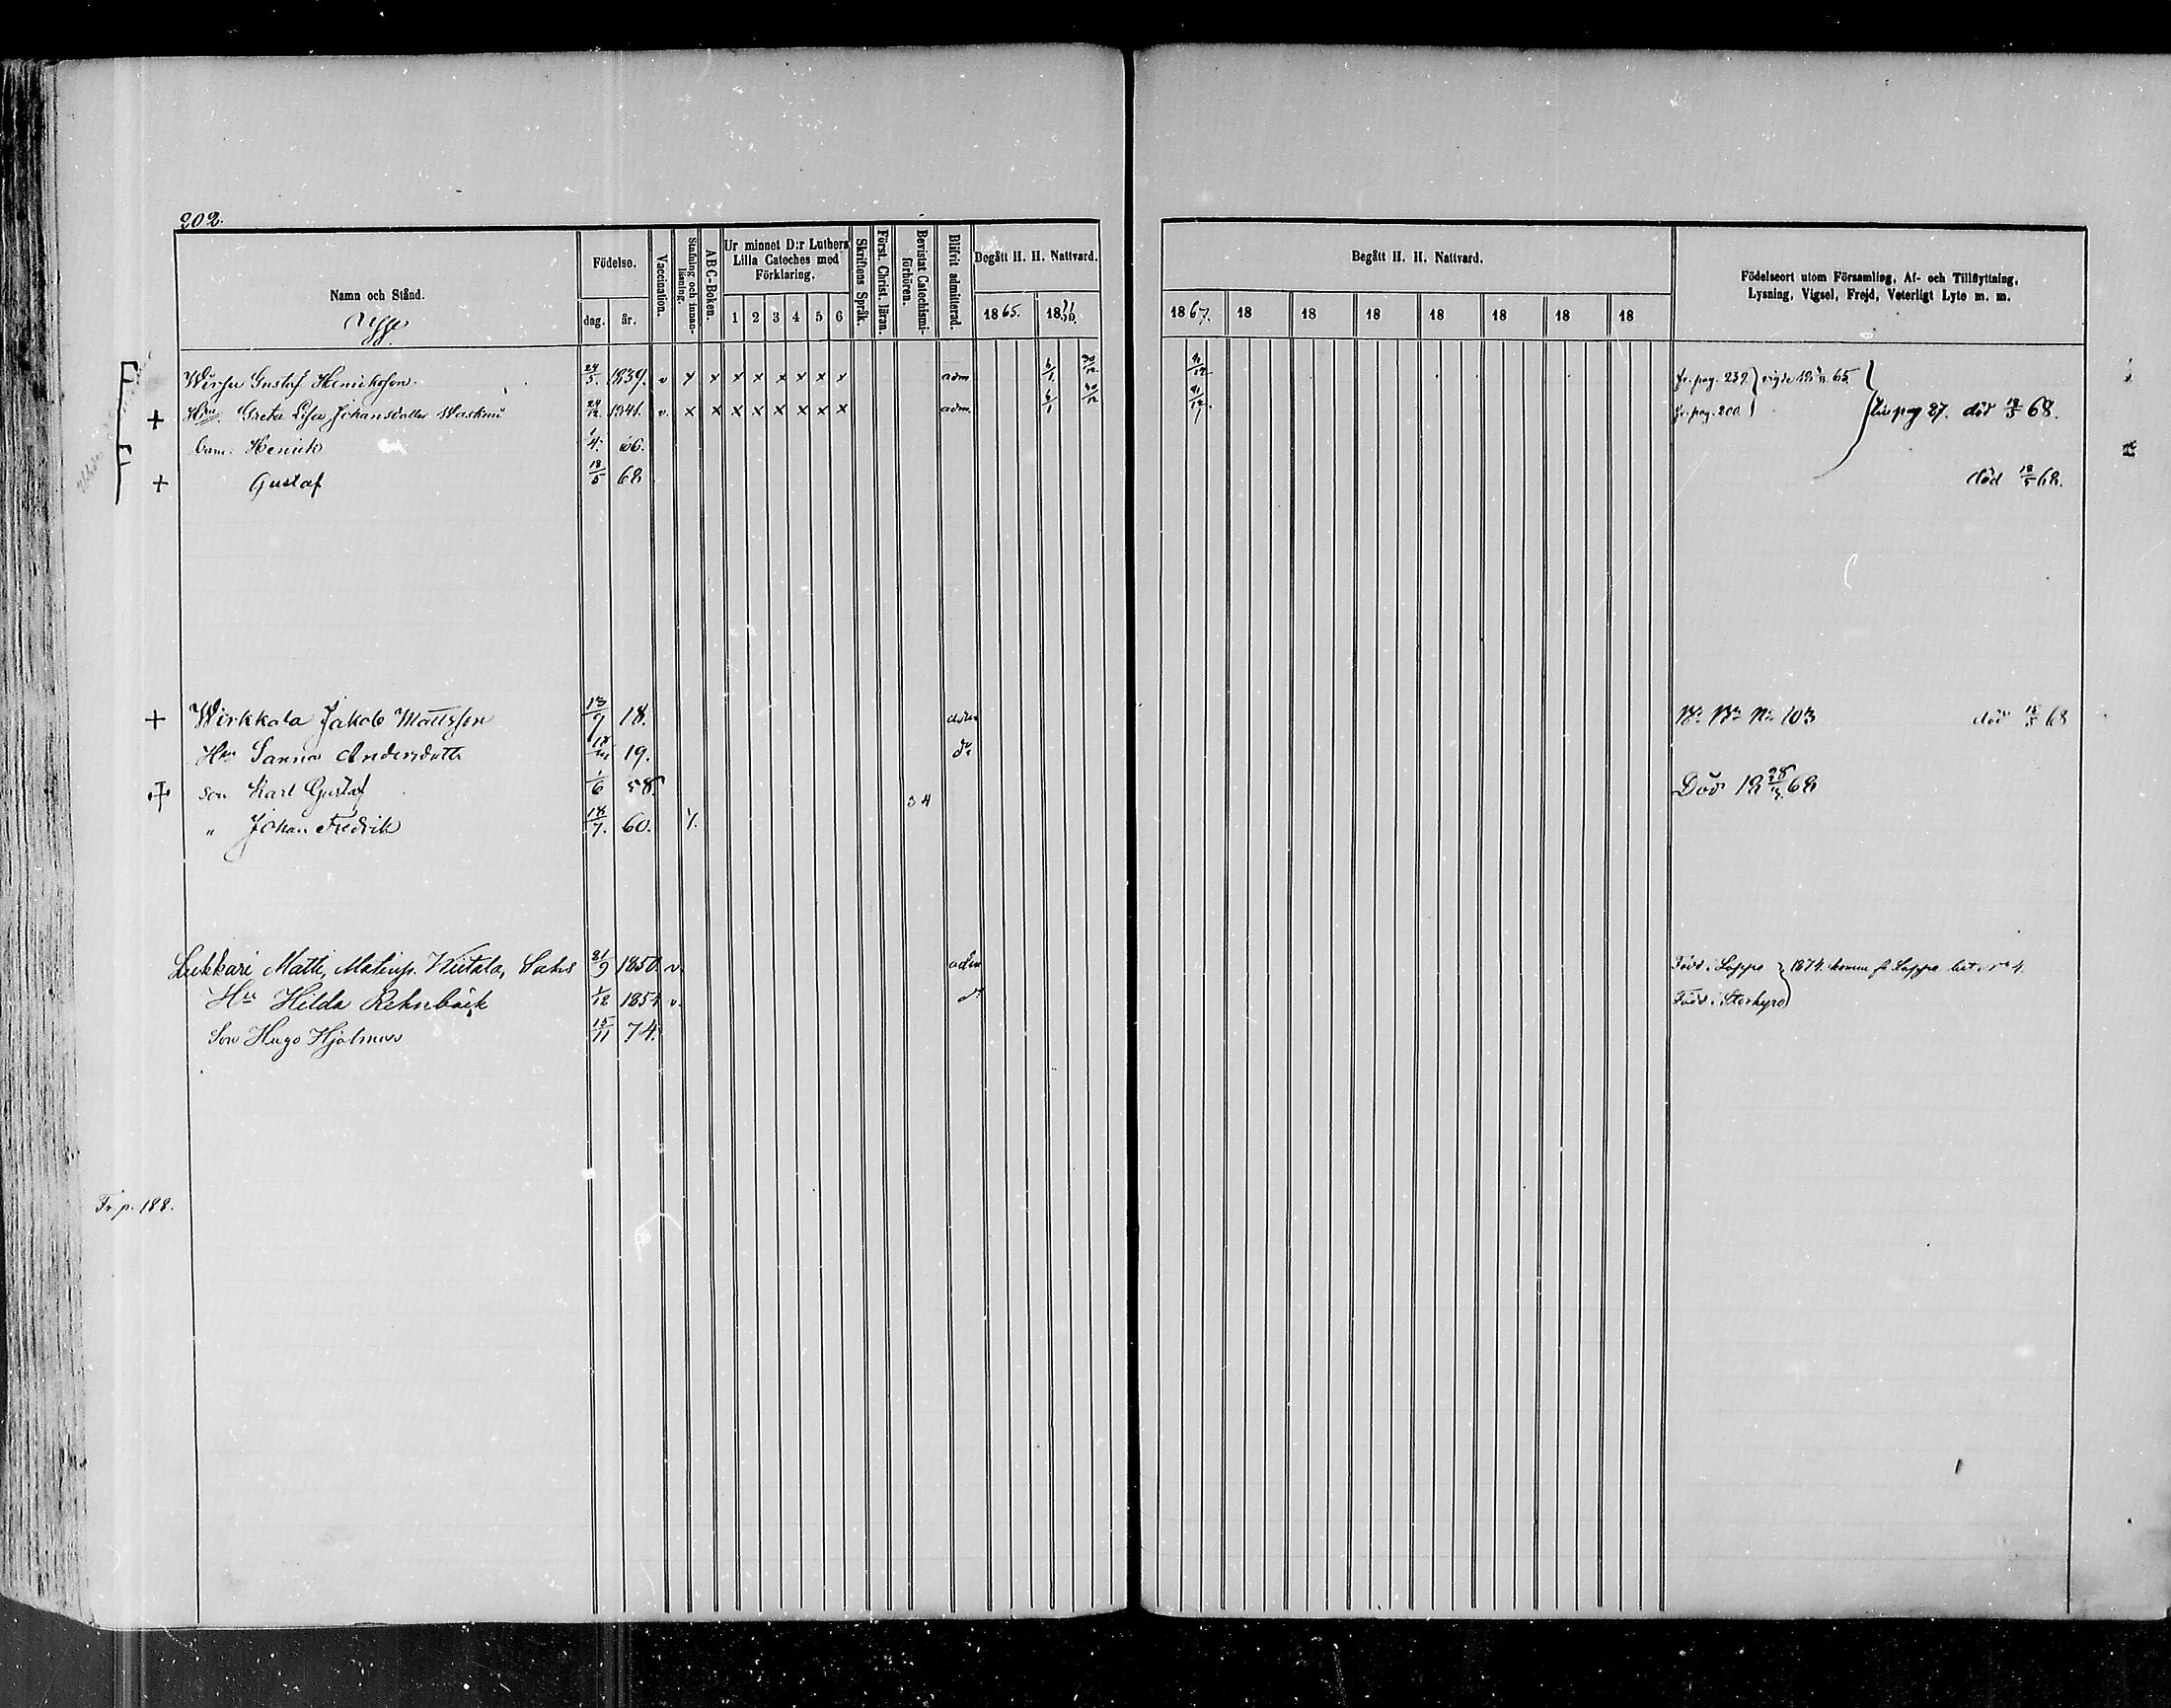 302.
Namn och Stånd.
Födelse.
dag. år.
Vaccination.
Stafning och innanläsning.
ABC-Boken.
Ur minnet D:r Luthers Lilla Cateches med Förklaring.
1 2 3 4 5 6
Skriftens Språk.
Först. Christ. läran.
Bevistat Catechismiförhören.
Blifvit admitterad.
Begått H. H. Nattvard.
1865. 18
Begått H. H. Nattvard.
1867. 18 18 18 18 18 18 18
Födelseort utom Församling, Af- och Tillflyttning,
Lysning, Vigsel, Frejd, Veterligt Lyte m. m.
Gustaf Henriksson 24/5. 1839. v x x x x x x x x adm 6/1 30/12 fr. pag. 239
+ Hru Greta Lisa Johansdotter 24/12 1841. v. x x x x x x x x adm. 6/1 30/12 fr. pag. 200 pag 27. död 18/5 68.
barn. Henrik 1/4. 66.
+ Gustaf 18/5 68 död 18/5 68.
+ Wirkkala Jakob Mattsson 13/7 18. adm No 103 död 68
Hru Sanna Andersdotter 19. do
+ son Karl Gustaf 1/6 58. Död 68
" Johan Fredrik 18/7. 60. 34
Lukkari Matti, Matinp. 21/9 1850. v. adm Född i Lappo 1874. komm fr Lappo
Hru Hilda Rehnbäck 1/12 1854 v. do Född i Storkyro
Son Hugo Hjalmar 15/11 74.
Fr. p. 188.